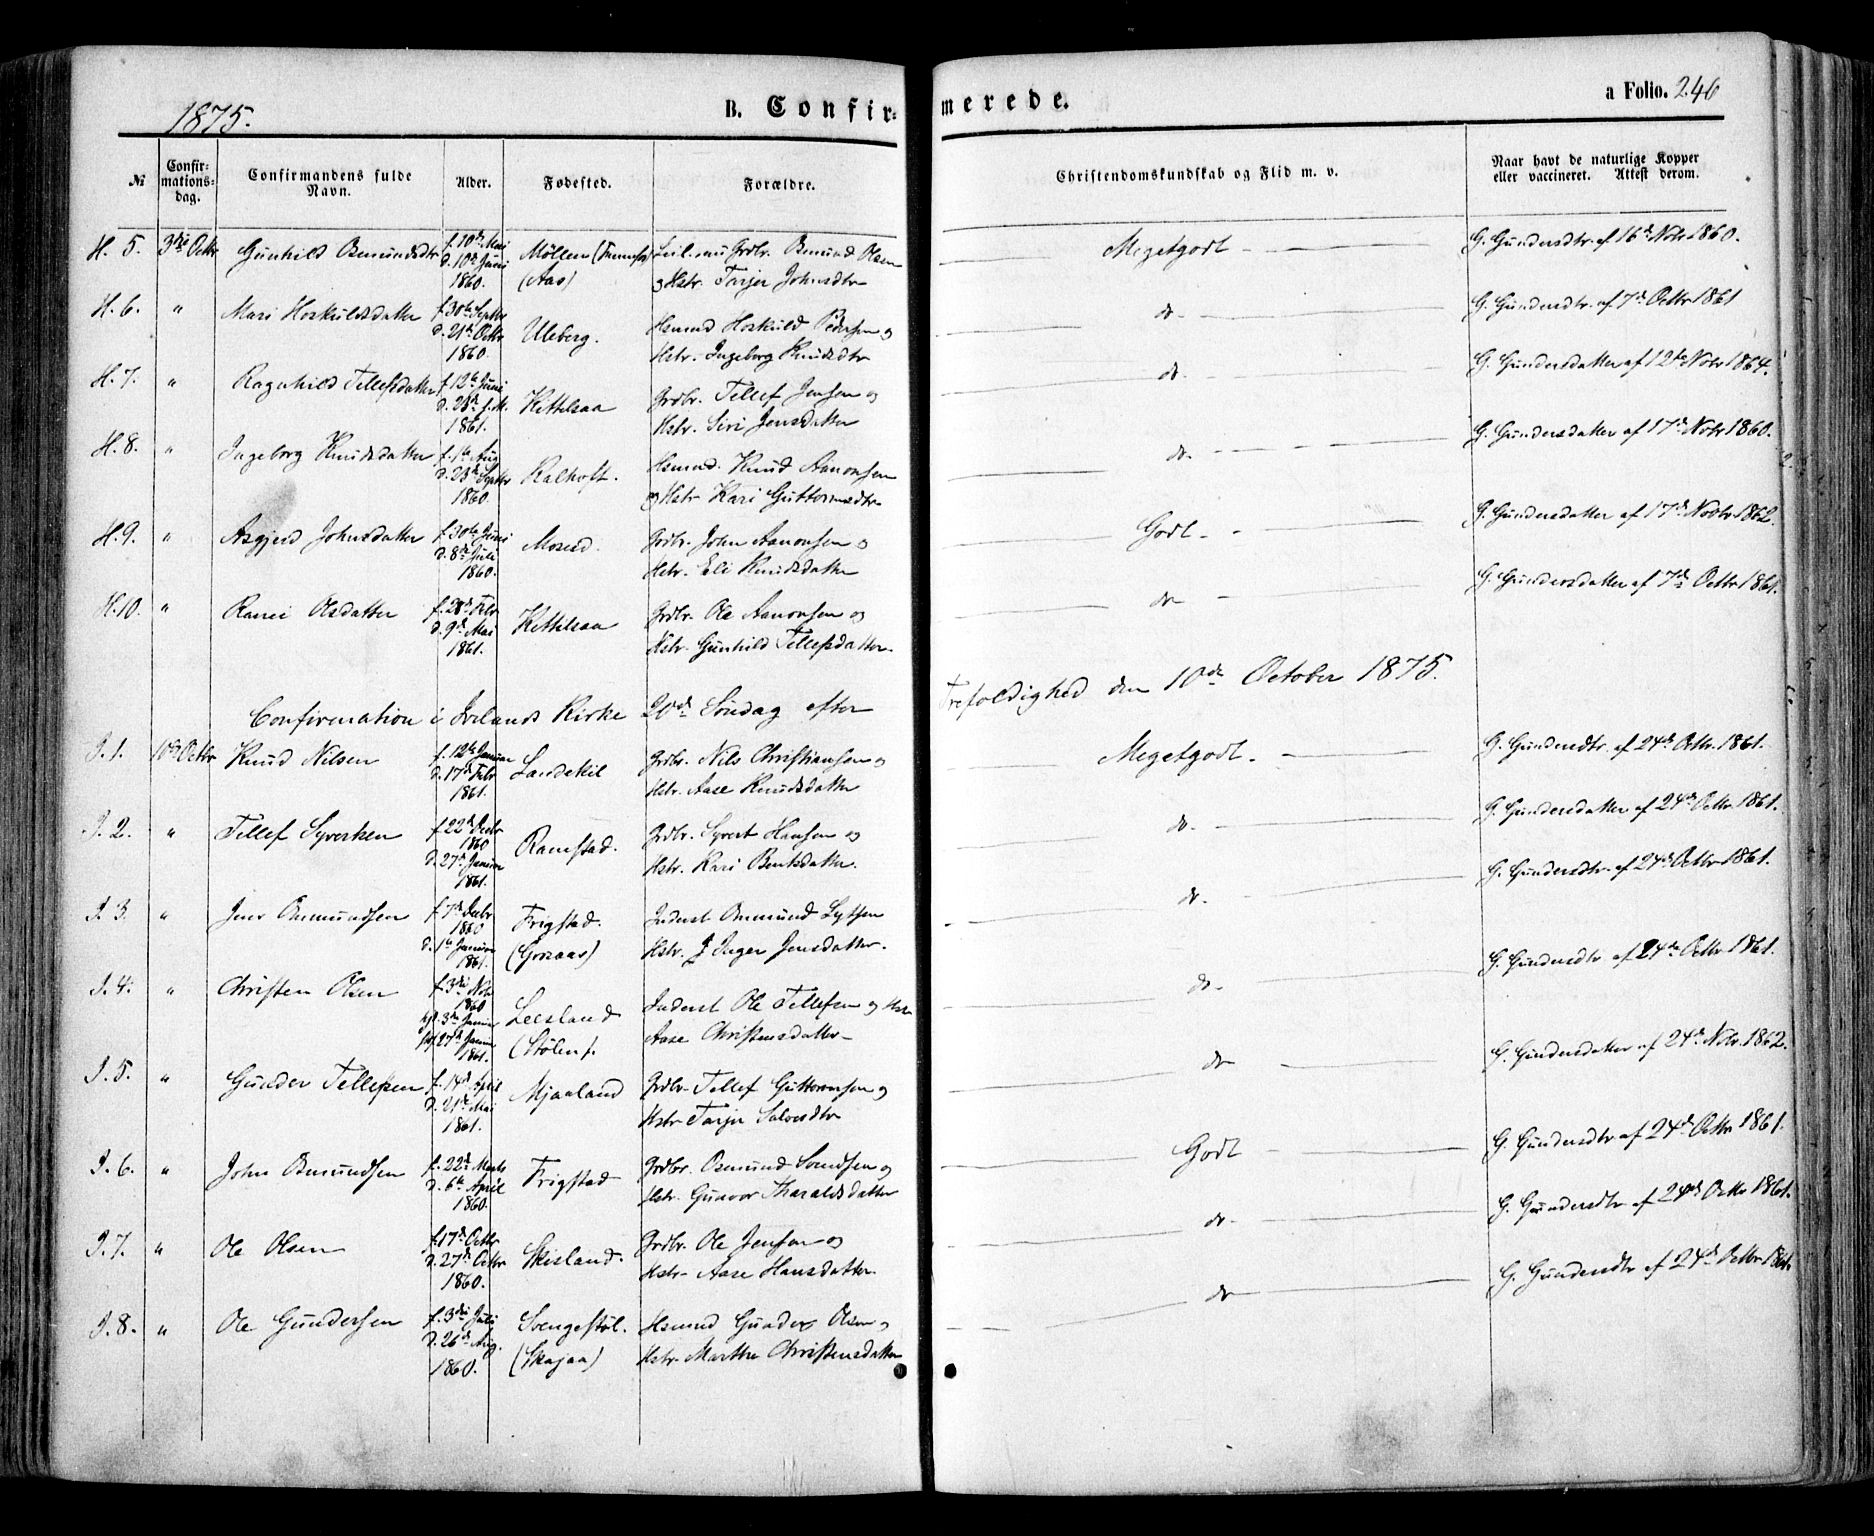 1875. B. Confir- merede. a Folio. 246
№ Confir-mations-dag. Confirmandens fulde Navn. Alder. Fødested. Forældre. Christendomskundskab og Flid m. v. Naar havt de naturlige Kopper eller vaccineret. Attest derom.
H. 5. 3die Octbr Gunhild Osmundsdtr f. 10de Mai Møllen Grdbr. Osmund Olsen Megetgodt G. Gundersdtr. af 16de Novbr 1860.
d. 10de Juni (Aas) og Hstr. Tarjer Johnsdtr
1860.
H. 6. " Mari Hoskuldsdatter f. 30te Septbr Uleberg. Hsmnd Hoskuld Pedersen og do. G. Gundersdtr. af 7de Octbr 1861
d. 21de Octbr Hstr. Ingeborg Knudsdtr
1860.
H. 7. " Ragnhild Tellefsdatter f. 12te Juni Kittelsaa Grdbr. Tellef Jensen og do. G. Gundersdatter af 12te Novbr 1864.
d. 23de s. M. Hstr. Siri Jensdatter
1861.
H. 8. " Ingeborg Knudsdatter f. 1ste Aug Kalhoft. Hsmnd. Knud Aanonsen do. G. Gundersdatter af 17de Novbr 1860.
d. 23de Septbr og Hstr Kari Guttormsdtr
1860.
H. 9. " Asgjerd Johnsdatter f. 30te Juni Mosed. Grdbr. John Aanonsen og Godt. G. Gundersdatter af 17de Novbr 1862.
d. 8de Juli Hstr. Eli Knudsdatter
1860.
H. 10. " Ranei Olsdatter f. 28de Febr Kittelsaa Grdbr. Ole Aanonsen og do G. Gundersdatter af 7de Octbr 1861.
d. 9de Mai Hstr. Gunhild Tellefsdatter.
1861.
Confirmation i Iveland Kirke 20de Søndag efter Trefoldighed den 10de October 1875.
I. 1. 10de Octbr Knud Nilsen f. 12te Januar Landekil Grdbr. Nils Christiansen og Megetgodt. G. Gundersdtr. af 24de Octbr. 1861.
d. 17de Febr Hstr. Aase Knudsdatter
1861.
I. 2. " Tellef Syvertsen f. 22de Decbr Ramstad. Grdbr. Syvert Hansen og do. G. Gundersdatter af 24de Octbr. 1861.
1860
d. 27de Januar Hstr. Kari Bentsdatter.
1861.
I. 3. " Jens Osmundsen f. 7de Decbr Frigstad. Inderst Osmund Lytsen do. G. Gundersdtr. af 24de Octbr 1861.
1860
d. 1ste Januar (Goraas) Hstr. Inger Jensdatter.
1861.
I. 4. " Christen Olsen f. 3die Nov Leesland Inderst Ole Tellefsen og Hstr do. G. Gundersdtr af 24de Octbr 1861.
1860
hjd. 3die Januar (Stølen). Aase Christensdatter
27de Januar
1861.
I. 5. " Gunder Tellefsen f. 14de April Mjaaland Grdbr. Tellef Guttormsen og do G. Gundersdatter af 24de Novbr. 1862.
d. 21de Mai Hstr Tarjer Salvesdtr
1861.
I. 6. " John Osmundsen f. 22de Marts Frigstad Grdbr. Osmund Tomdsen og Godt G. Gundersdtr af 24de Octbr 1861.
d. 6te April Hstr. Gunvor Tharaldsdatter
1860.
I. 7. " Ole Olsen f. 17de Octbr Skisland. Grdbr. Ole Jensen og do. G. Gundersdtr af 24de Octbr 1861.
d. 27de Octbr Hstr Aase Hansdatter.
1860.
I. 8. " Ole Gundersen f. 3die Juli Svengestøl. Hsmnd Gunder Olsen og do G. Gundersdtr af 24de Octbr 1861.
d. 26de Aug. (Skajaa) Hstr Marthe Christensdatter
1860.